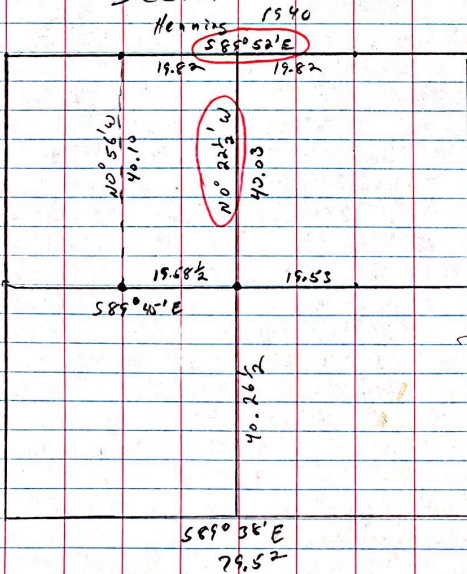 Henning 1940
S89° 52' E
19.82 19.82
N0° 56' W
40.10
N0° 22½' W
40.03
19.68½ 19.53
S89° 45' E
40.26½
S89° 38' E
79.52